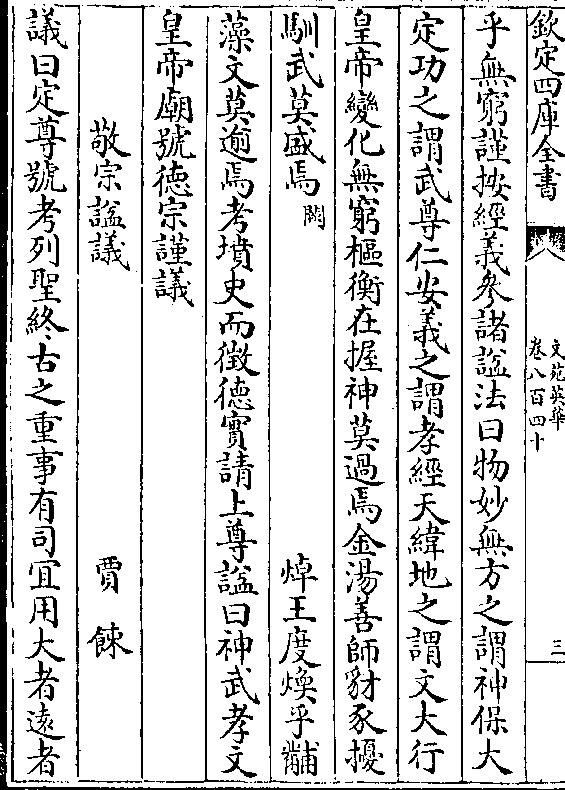 欽定四庫全書
文苑英華
卷八百四十
三
乎無窮謹按經義參諸諡法曰物妙無方之謂神保大
定功之謂武尊仁安義之謂孝經天緯地之謂文大行
皇帝變化無窮樞衡在握神莫過焉金湯善師豺豕擾
馴武莫盛焉闕 焯王度煥乎黼
藻文莫逾焉考墳史而徵德實請上尊諡曰神武孝文
皇帝廟號德宗謹議
敬宗諡議 賈餗
議曰定尊號考列聖終古之重事有司宜用大者遠者